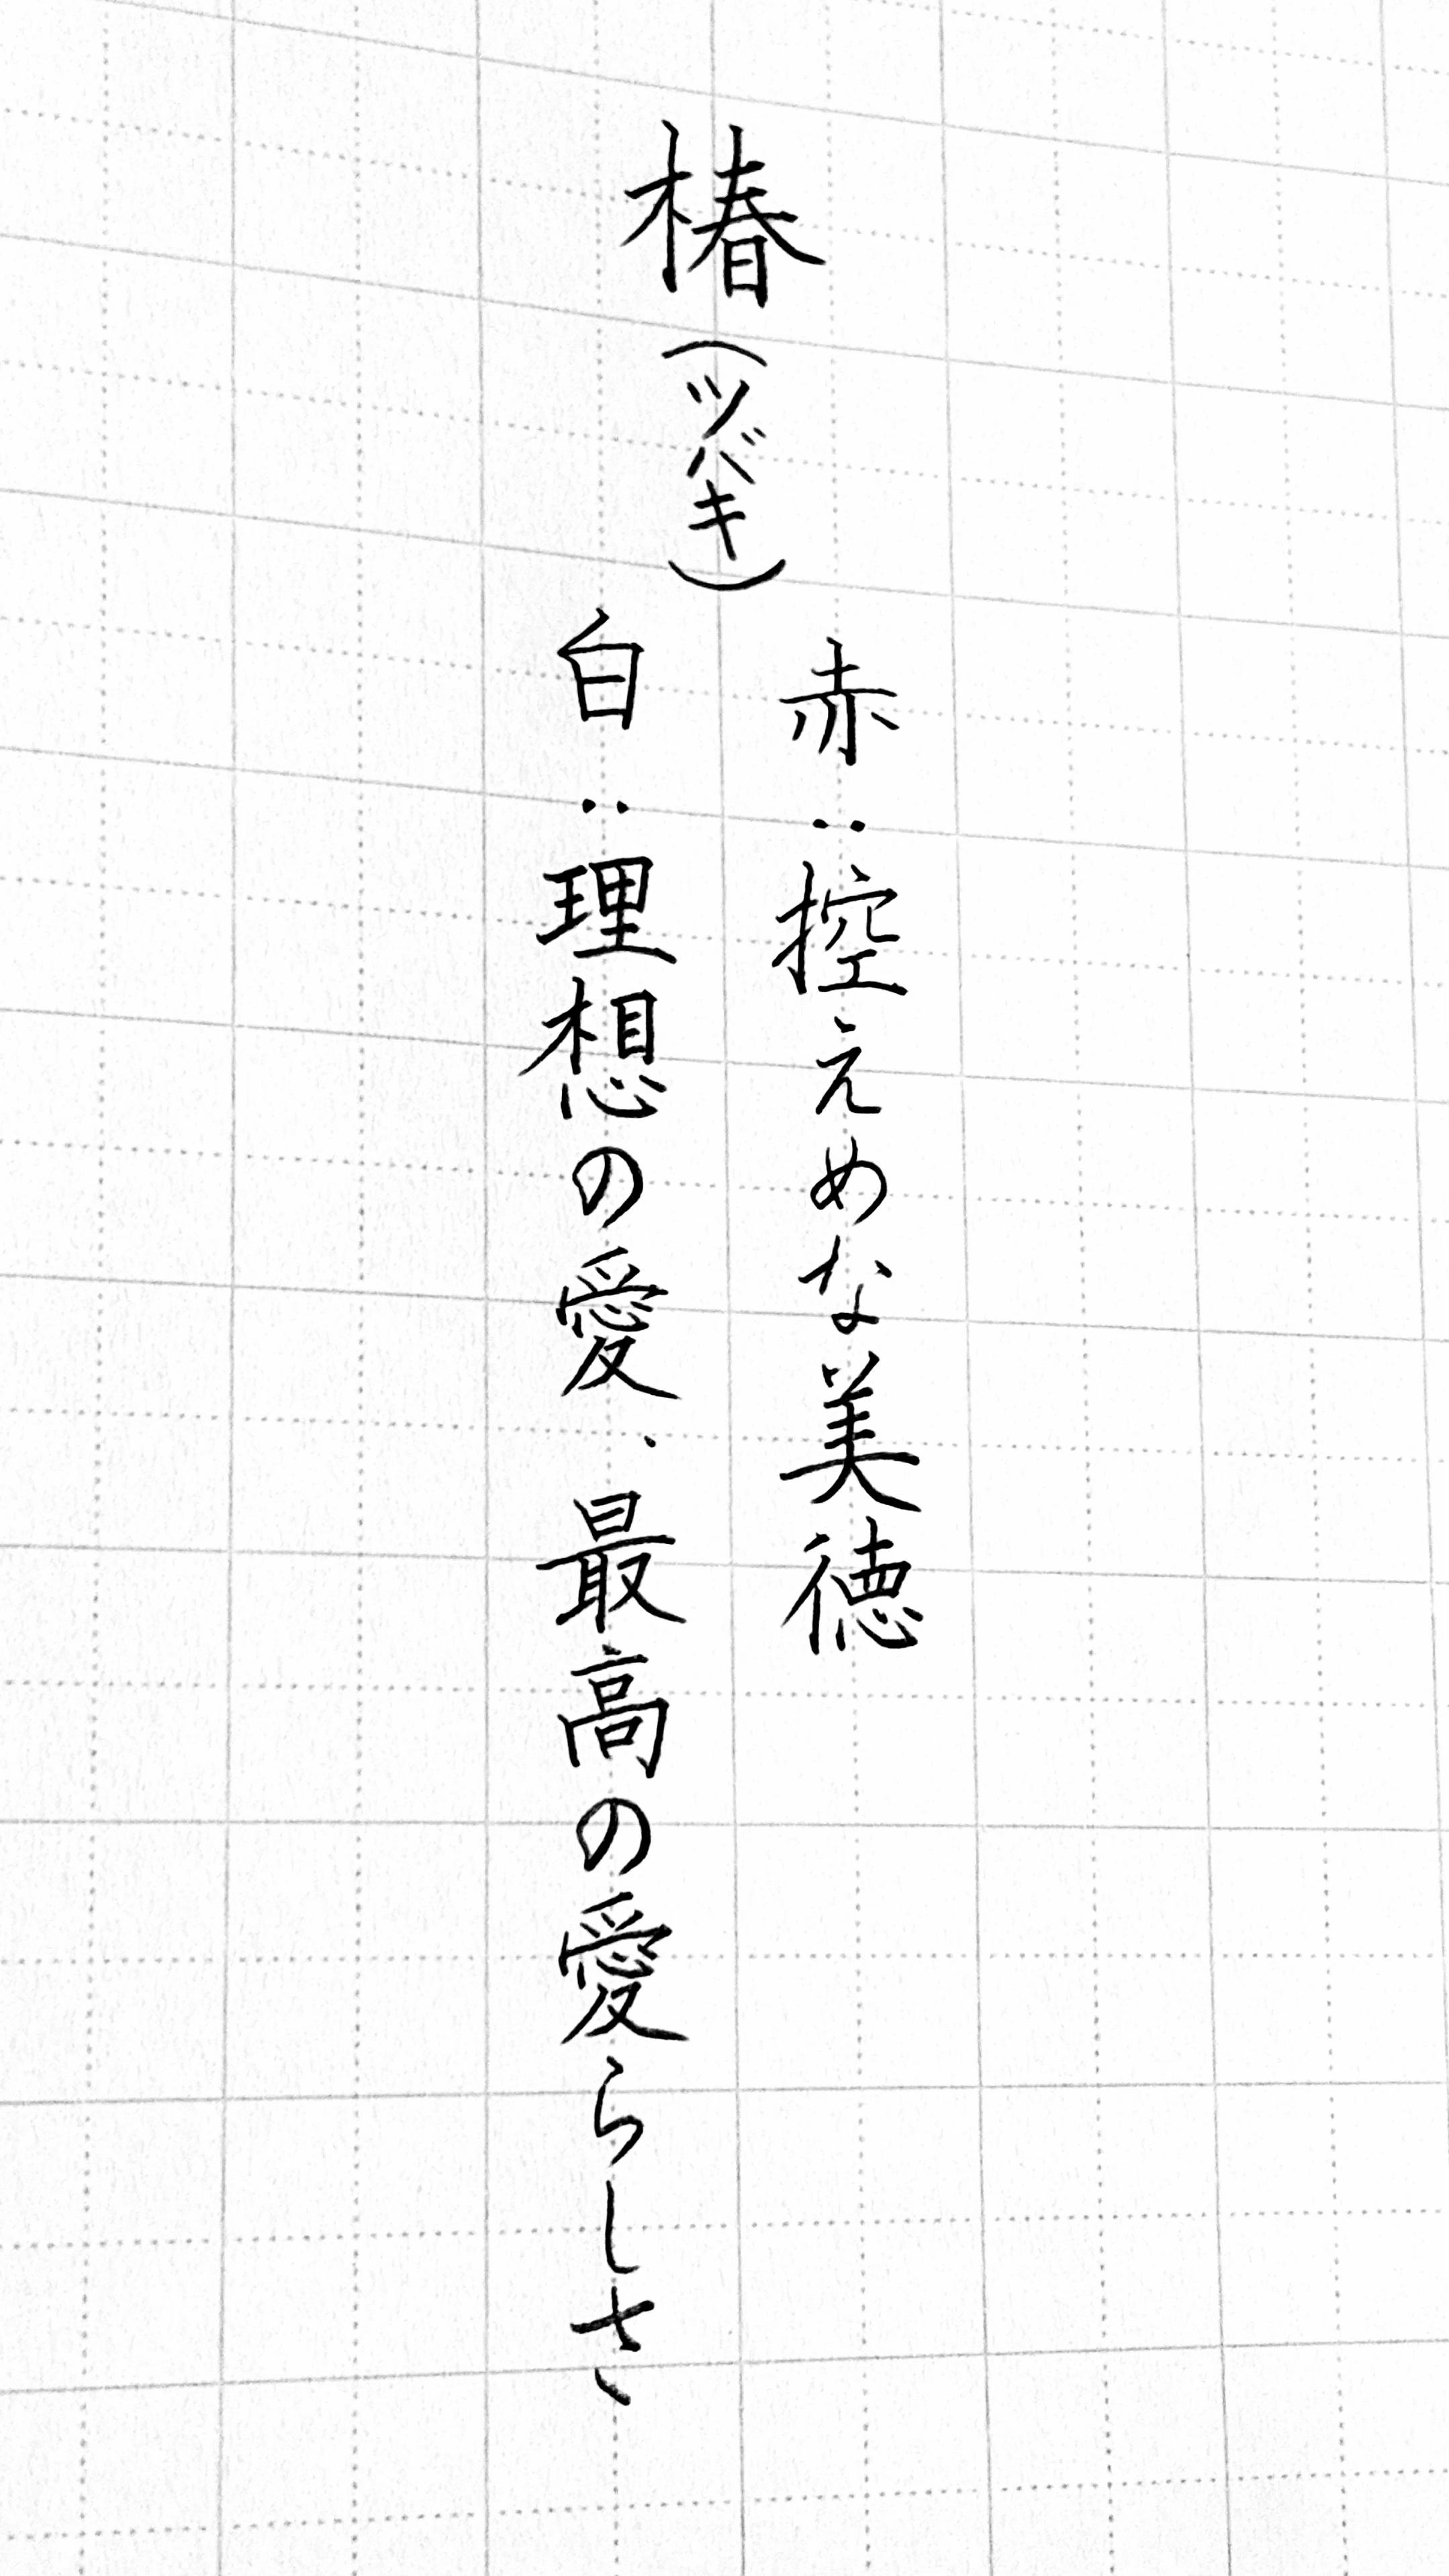 椿(ツバキ)
赤:控えめな美徳
白:理想の愛、最高の愛らしさ